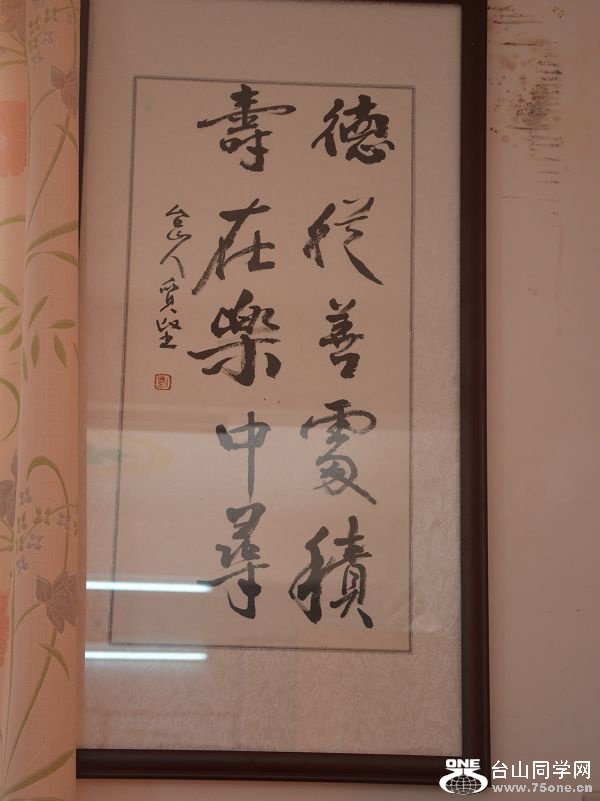 德從善處積
壽在樂中尋
台山人質堅
ONE 台山同学网
www.75one.cn